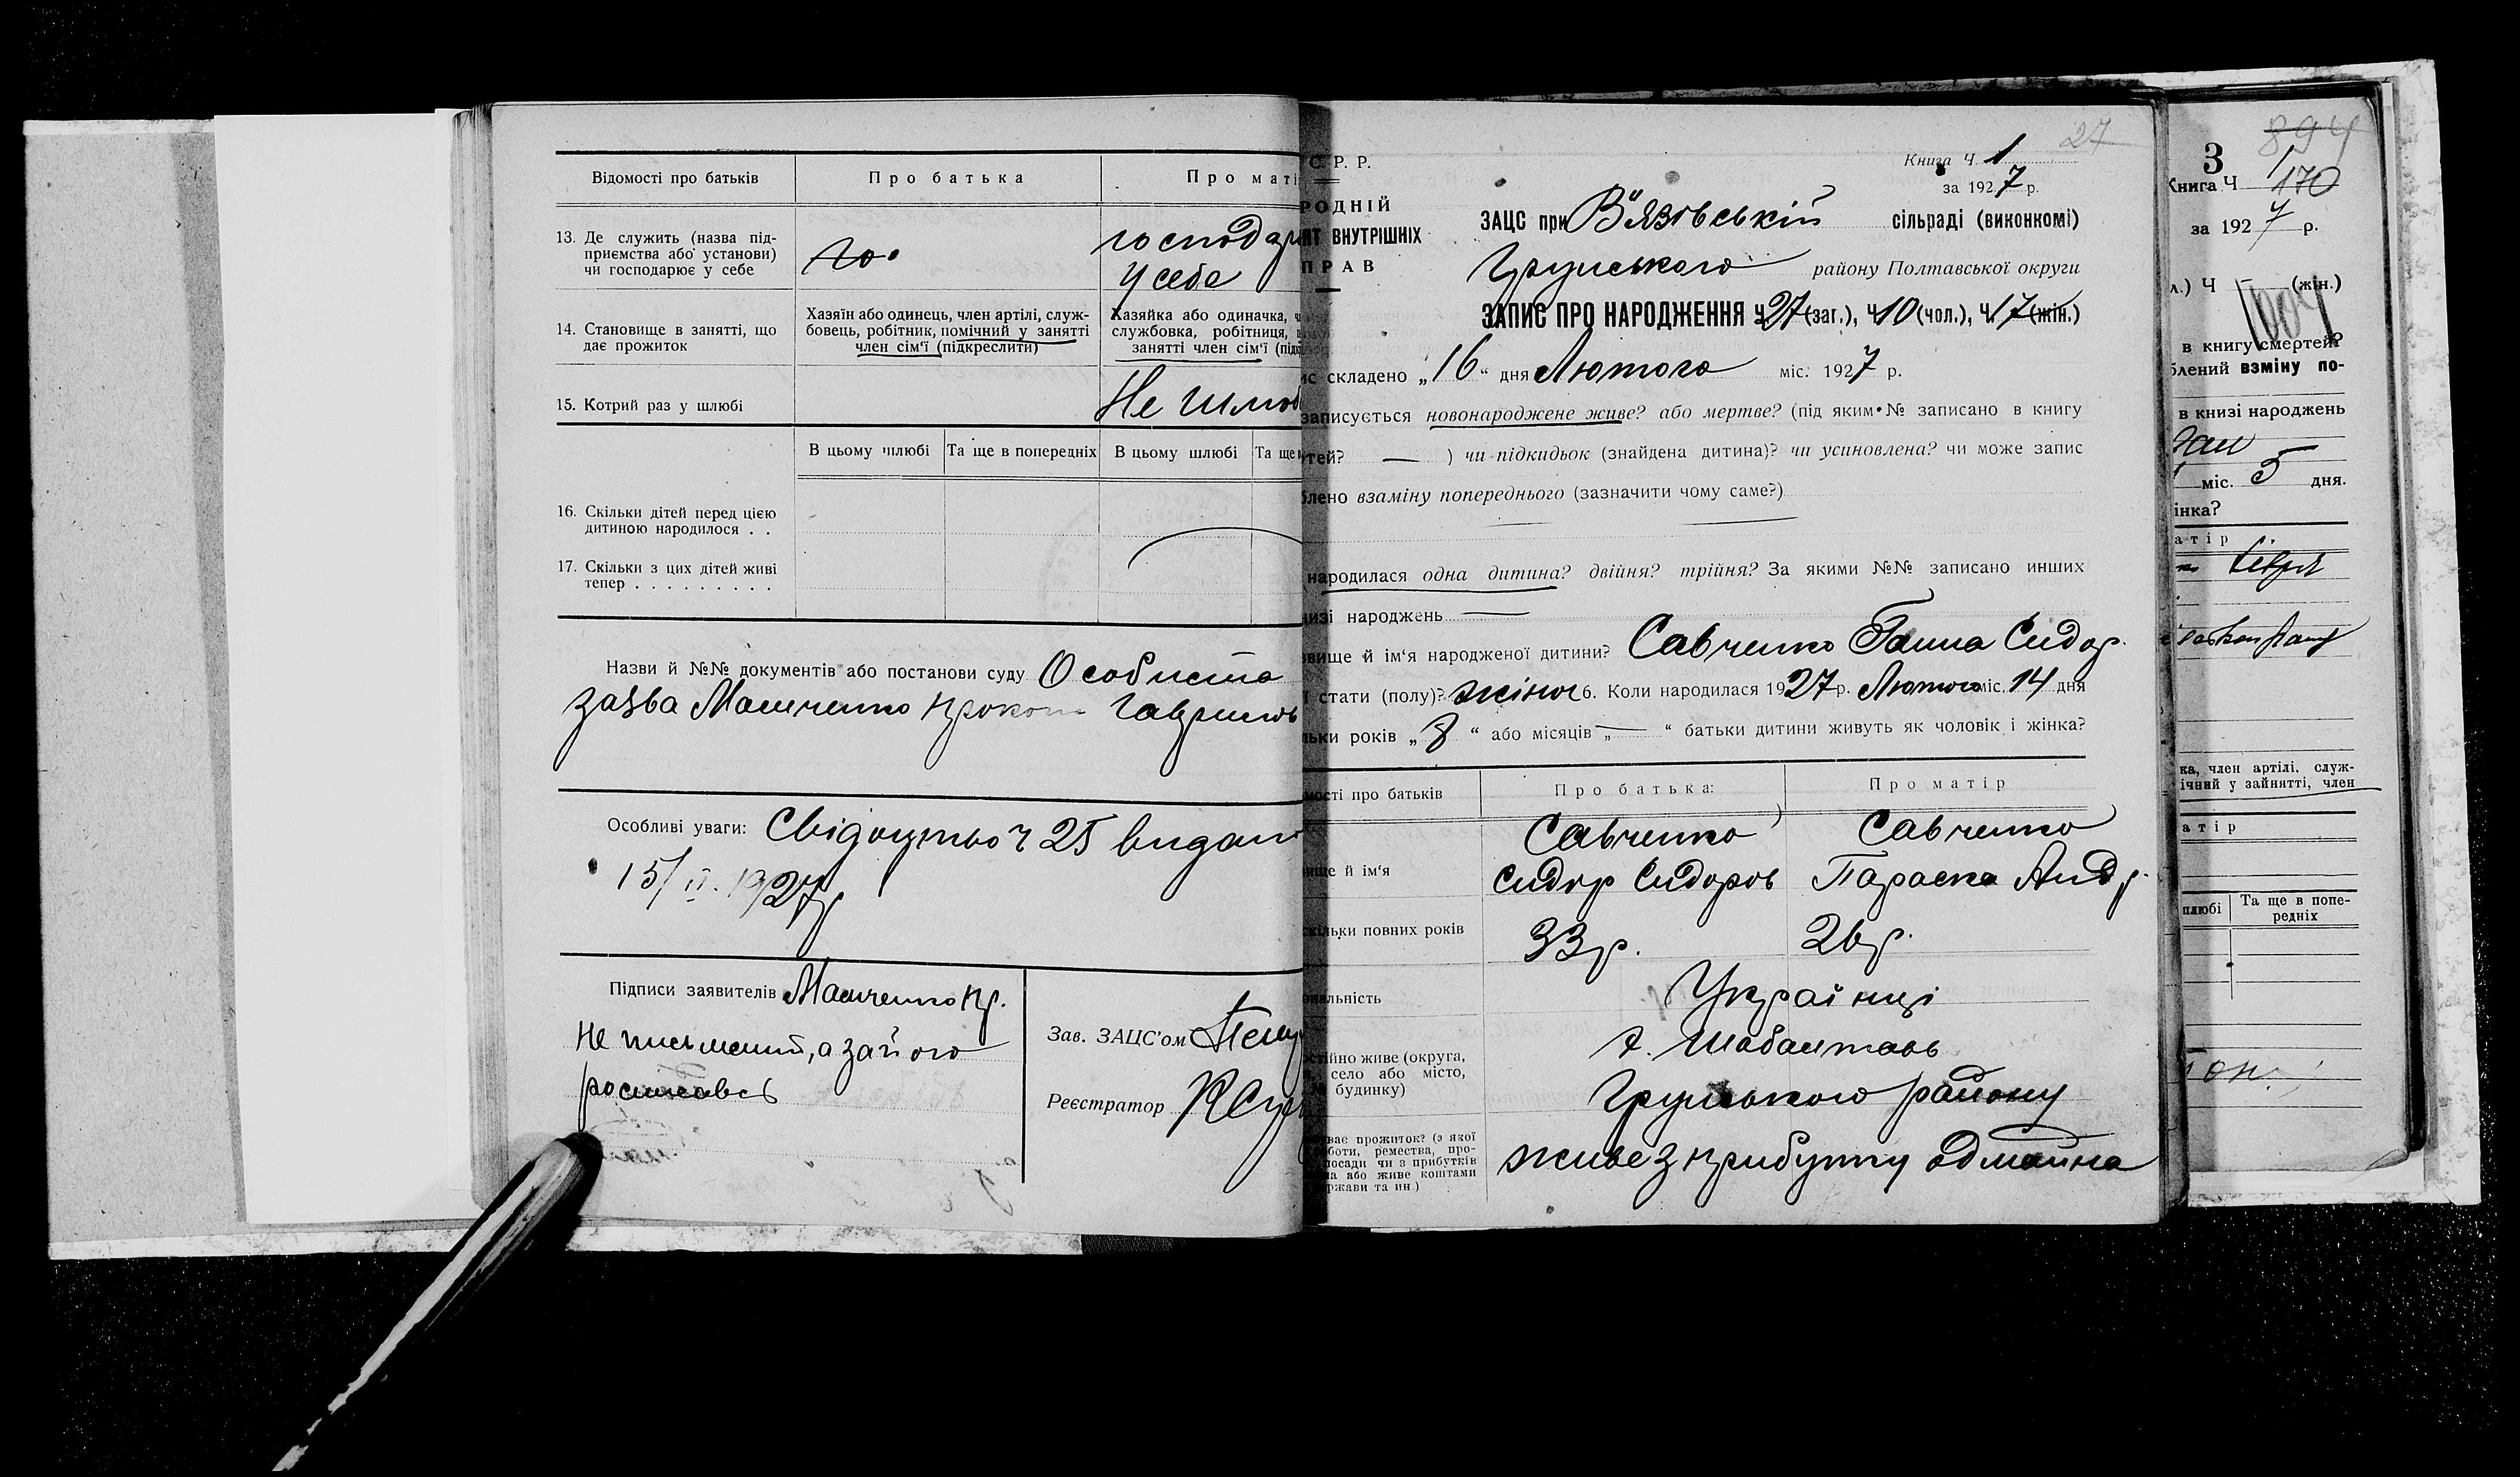 Відомості про батьків
Про батька
Про маті
13. Де служить (назва під-
приємства або установи)
чи господарює у себе
го
господар
у себе
14. Становище в занятті, що
дає прожиток
Хазяїн або одинець, член артілі, служ-
бовець, робітник, помічний у занятті
член сім'ї (підкреслити)
Хазяйка або одиначка, ч
службовка, робітниця,
занятті член сім'ї (під
15. Котрий раз у шлюбі
Не шлюб
В цьому шлюбі
Та ще в попередніх
В цьому шлюбі
Та ще
16. Скільки дітей перед цією
дитиною народилося . .
17. Скільки з цих дітей живі
тепер . . . . . . . . .
Назви й №№ документів або постанови суду Особиста
заява Прокоп Гаврилов
Особливі уваги: Свідоцтво Ч 25 видано
15/II. 1927р
Підписи заявителів Пр.
не письменний, а за його
росписавсь
Зав. ЗАЦС'ом
Реєстратор
27
С. Р. Р.
РОДНІЙ
ЯТ ВНУТРІШНІХ
ПРАВ
Книга Ч. 1
за 1927 р.
ЗАЦС при В'язівській сільраді (виконкомі)
Грунського району Полтавської округи
ЗАПИС ПРО НАРОДЖЕННЯ Ч. 27 (заг.), Ч. 10 (чол.), Ч. 17 (жін.)
ис складено „16" дня Лютого міс. 1927 р.
записується новонароджене живе? або мертве? (під яким № записано в книгу
тей? — ) чи підкидьок (знайдена дитина)? чи усиновлена? чи може запис
блено взаміну попереднього (зазначити чому саме?)
народилася одна дитина? двійня? трійня? За якими №№ записано инших
изі народжень —
звище й ім'я народженої дитини? Савченко Ганна Сидор.
ї стати (полу)? жіноч 6. Коли народилася 1927 р. Лютого міс. 14 дня
льки років „8" або місяців „—" батьки дитини живуть як чоловік і жінка?
мості про батьків
Про батька:
Про матір
вище й ім'я
Савченко
Сидор Сидоров
Савченко
Параска Андр.
скільки повних років
33 р.
26 р.
ональність
Українці
стійно живе (округа,
село або місто,
будинку)
х. Шабалтаєв
Грунського району
ває прожиток? (з якої
боти, ремества, про-
посади чи з прибутків
на або живе коштами
ржави та ин.)
живе з прибутку од майна
894
3
Книга Ч 1
170
за 1927 р.
л.) Ч (жін.)
в книгу смертей?
блений взміну по-
в книзі народжень
міс. 5 дня.
інка?
атір
ка, член артілі, служ-
ічний у зайнятті, член
атір
шлюбі
Та ще в попе-
редніх